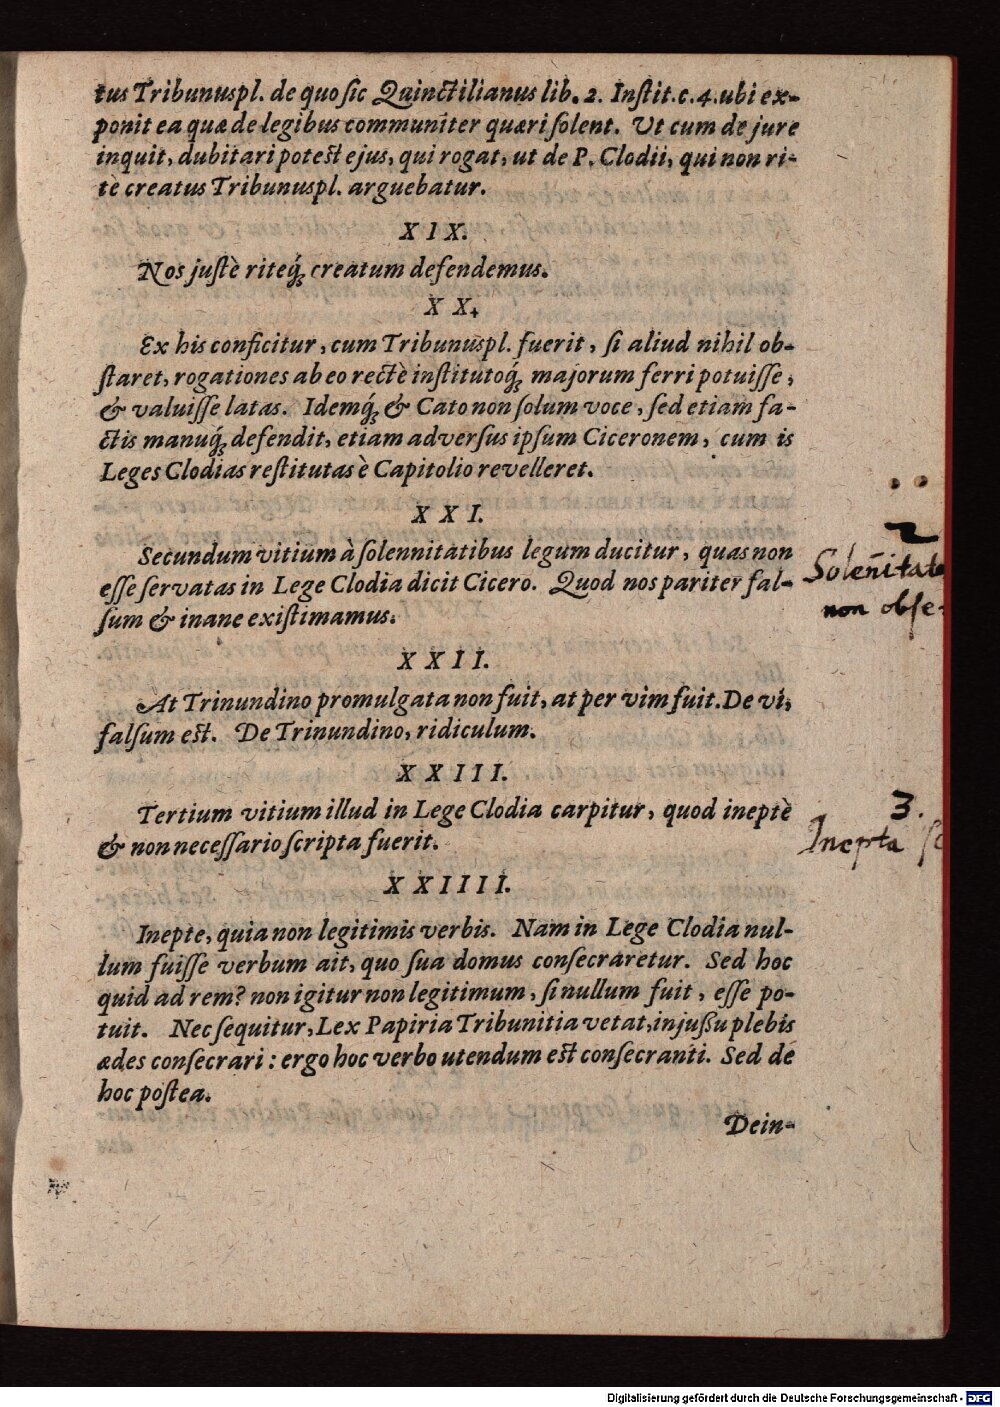 tus Tribunus pl. de quo sic Quinctilianus lib. 2. Instit. c. 4. ubi ex-
ponit ea quæ de legibus communiter quæri solent. Ut cum de jure
inquit, dubitari potest ejus, qui rogat, ut de P. Clodii, qui non ri-
tè creatus Tribunus pl. arguebatur.
XIX.
Nos justè riteq́; creatum defendemus.
XX.
Ex his conficitur, cum Tribunus pl. fuerit, si aliud nihil ob-
staret, rogationes ab eo rectè institutoq́; majorum ferri potuisse,
& valuisse latas. Idemq́; & Cato non solum voce, sed etiam fa-
ctis manuq́; defendit, etiam adversus ipsum Ciceronem, cum is
Leges Clodias restitutas è Capitolio revelleret.
XXI.
Secundum vitium à solennitatibus legum ducitur, quas non
esse servatas in Lege Clodia dicit Cicero. Quod nos pariter fal-
sum & inane existimamus.
2
Solen̄itate
non obse-
XXII.
At Trinundino promulgata non fuit, at per vim fuit. De vi,
falsum est. De Trinundino, ridiculum.
XXIII.
Tertium vitium illud in Lege Clodia carpitur, quod ineptè
& non necessario scripta fuerit.
3.
Inepta sc
XXIIII.
Inepte, quia non legitimis verbis. Nam in Lege Clodia nul-
lum fuisse verbum ait, quo sua domus consecraretur. Sed hoc
quid ad rem? non igitur non legitimum, si nullum fuit, esse po-
tuit. Nec sequitur, Lex Papiria Tribunitia vetat, injussu plebis
ædes consecrari: ergo hoc verbo utendum est consecranti. Sed de
hoc postea.
Dein-
Digitalisierung gefördert durch die Deutsche Forschungsgemeinschaft - DFG